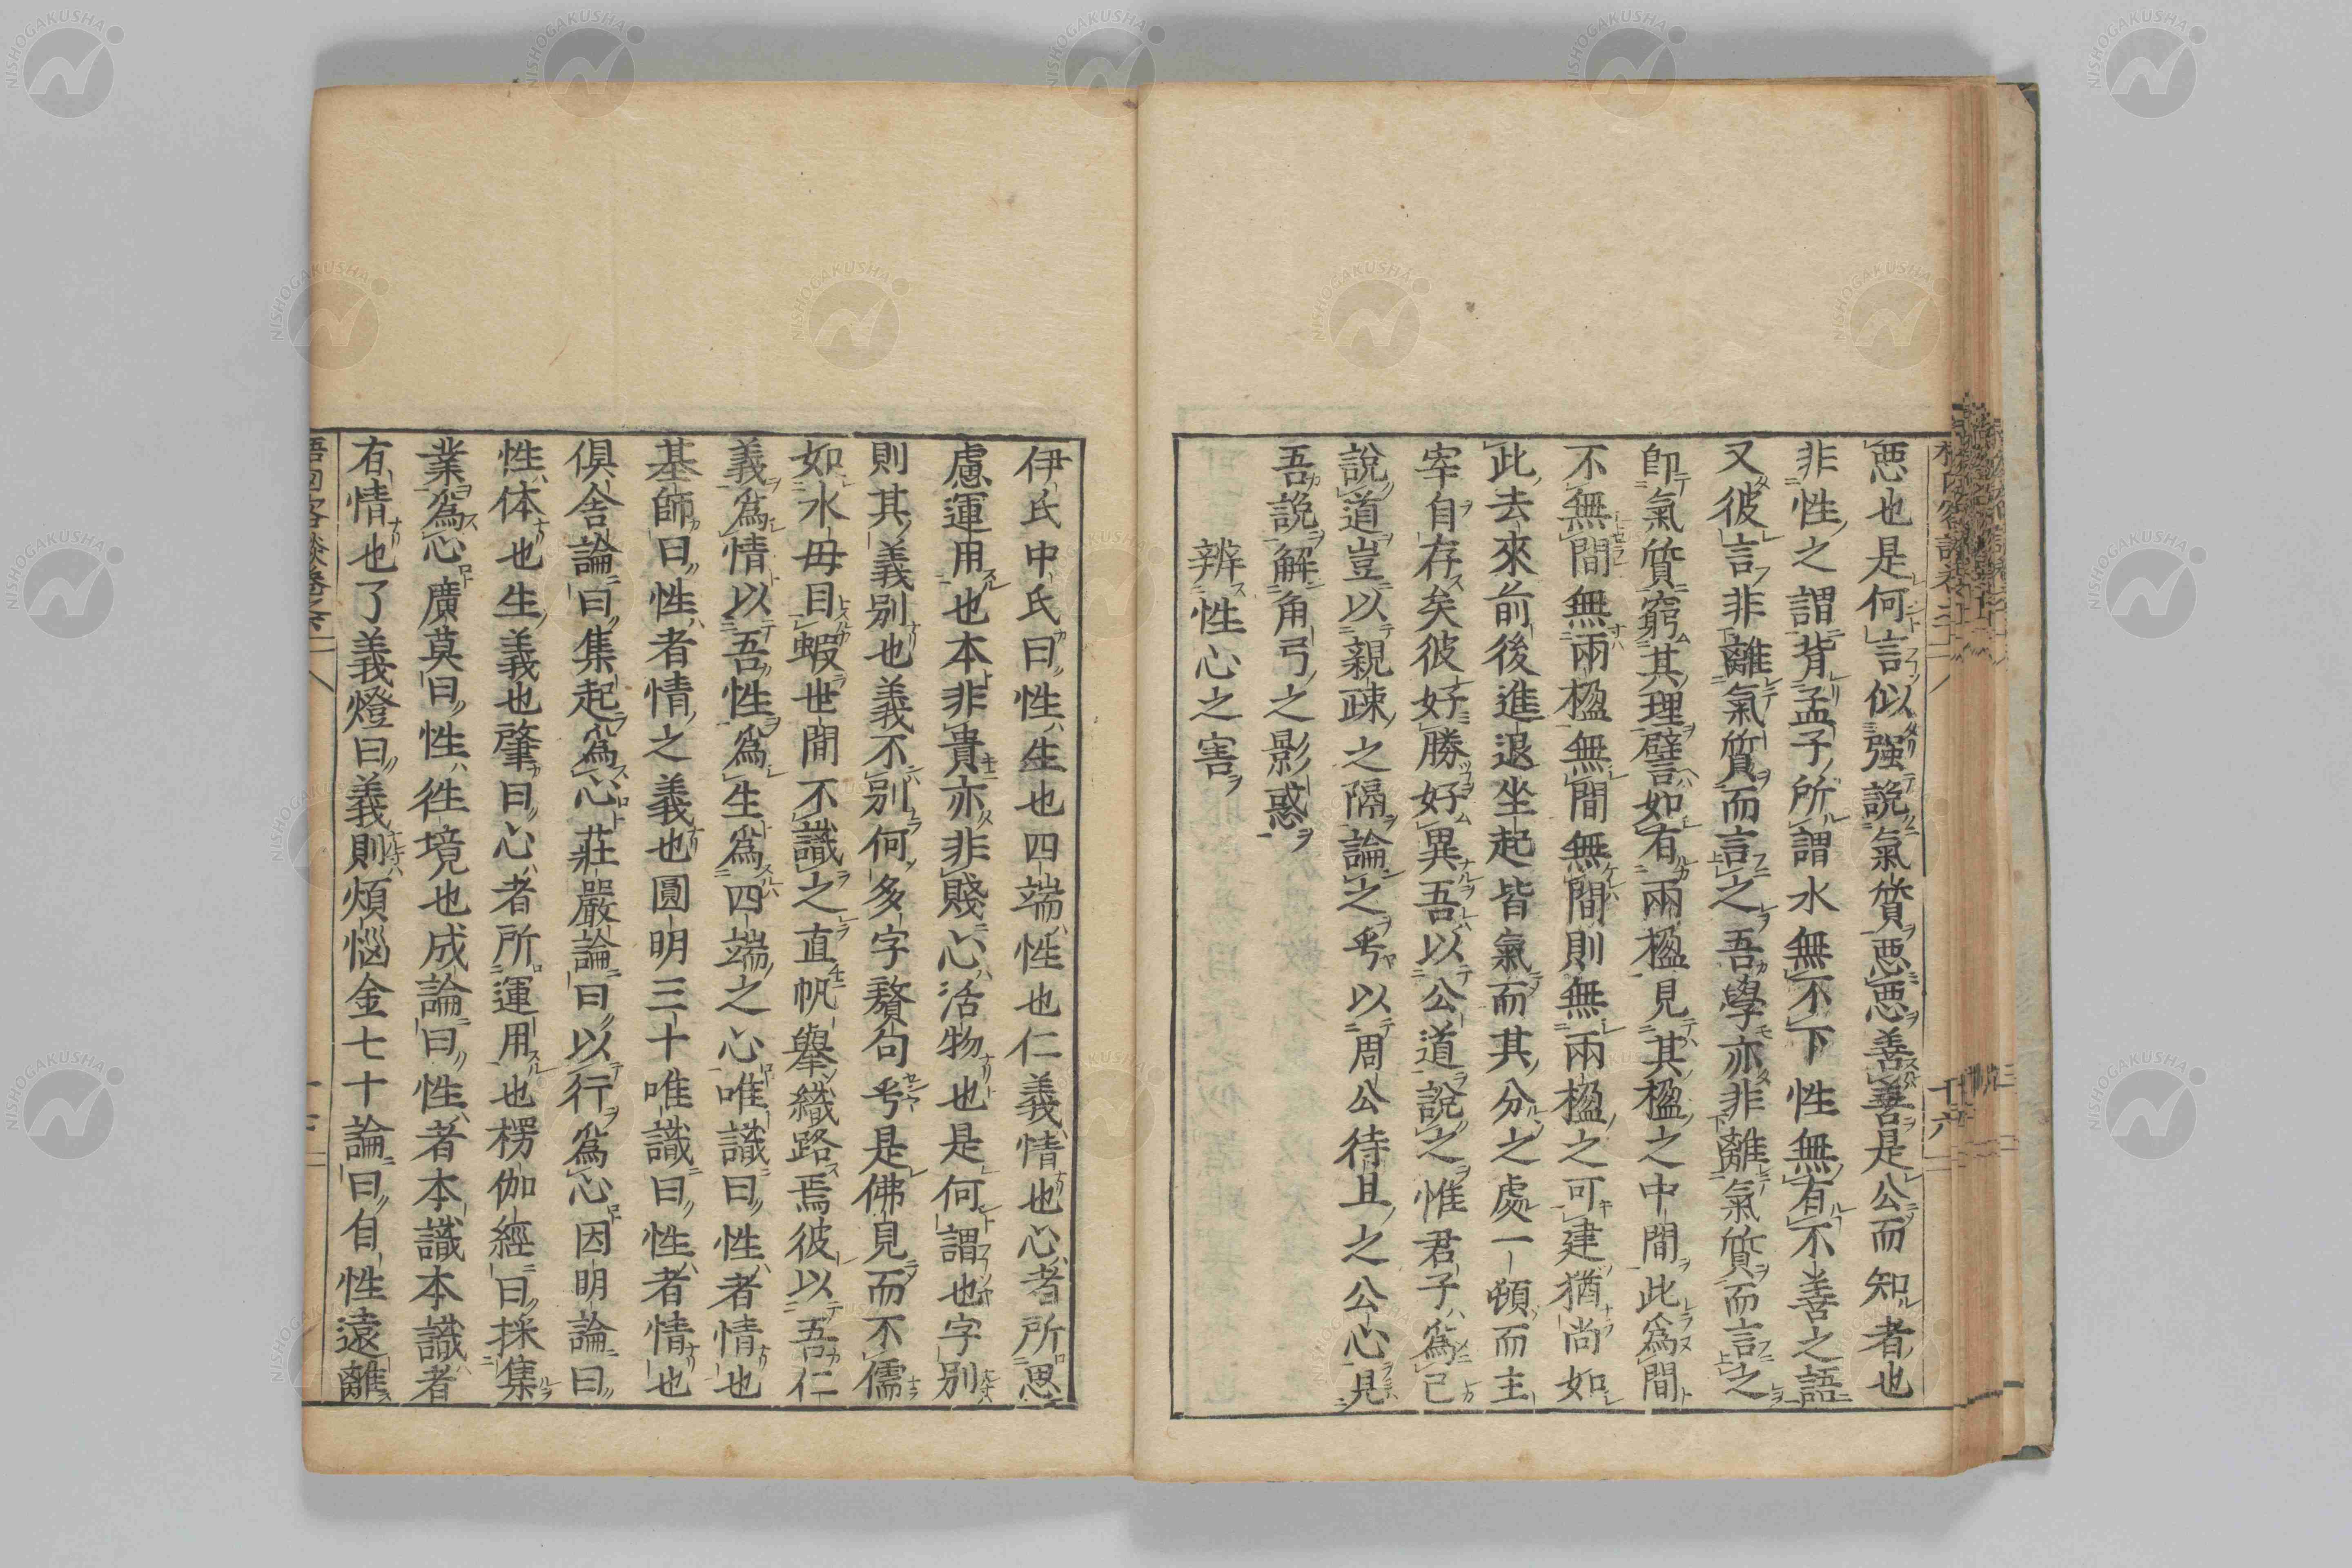 悪也是何言似强說氣質悪悪善善是公而知者也
非性之謂背孟子所謂水無不下性無有不善之語
又彼言非離氣質而言之吾學亦非離氣質而言之
即氣質窮其理譬如有兩楹見其楹之中間此爲間
不無間無兩楹無間無間則無兩楹之可建猶尚如
此去來前後進退坐起皆氣而其分之處一頓而主
宰自存矣彼好勝好異吾以公道說之惟君子爲己
說道豈以親疎之隔論之乎以周公待旦之公心見
吾說解角弓之影惑
辨性心之害
伊氏中氏曰性生也四端性也仁義情也心者所思
慮運用也本非貴亦非賤心活物也是何謂也字別
則其義別也義不別何多字贅句乎是佛見而不儒
如水母目蝦世間不識之直帆舉織路焉彼以吾仁
義爲情以吾性爲生爲四端之心唯識曰性者情也
基師曰性者情之義也圓明三十唯識曰性者情也
倶舍論曰集起爲心莊嚴論曰以行爲心因明論曰
性体也生義也肇曰心者所運用也楞伽經曰採集
業爲心廣莫曰性徃境也成論曰性者本識本識者
有情也了義燈曰義則煩惱金七十論曰自性遠離
NISHOGAKUSHA